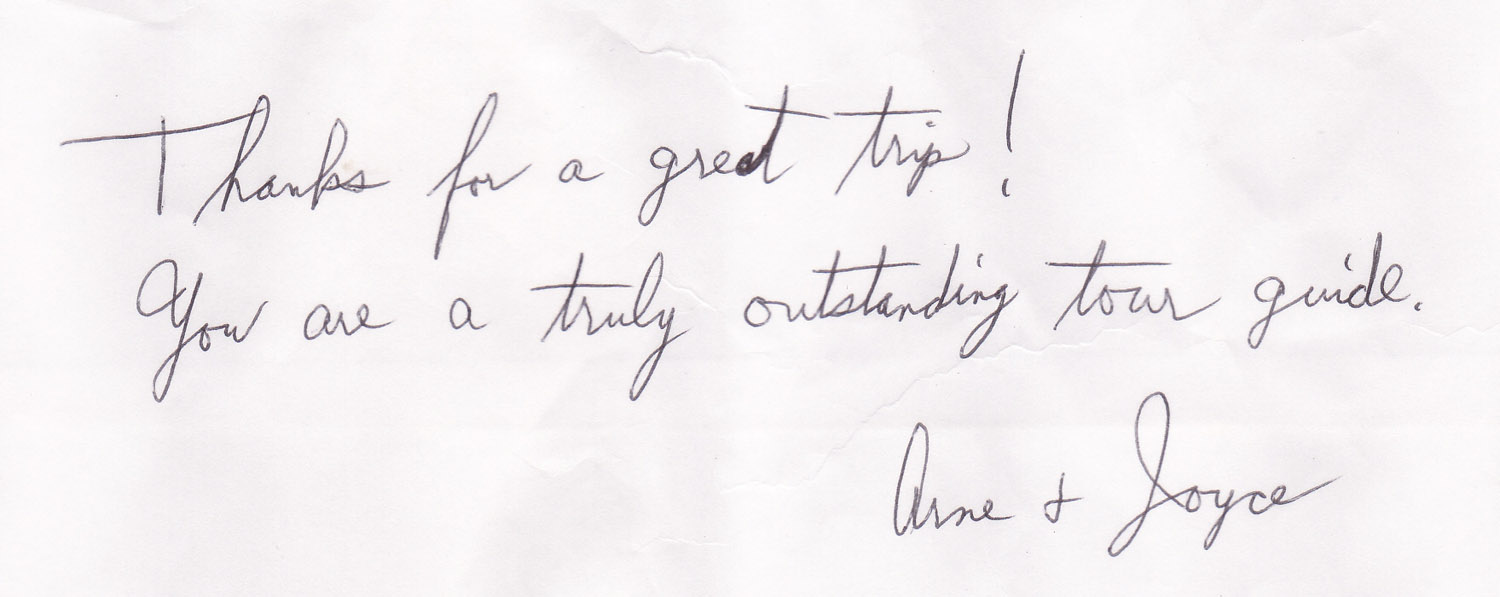 Thanks for a great trip!
You are a truly outstanding tour guide.
Arne + Joyce